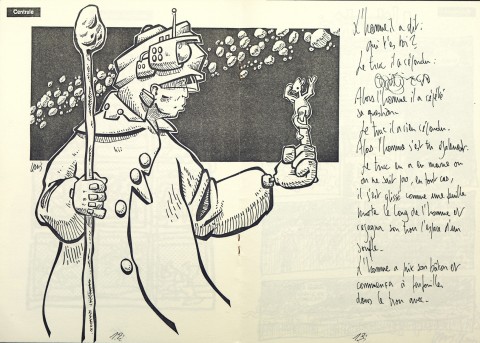 Centrale
L'homme il a dit :
qui t'es toi ?
Le truc il a répondu :
Alors l'homme il a répété
sa question.
Le truc il a rien répondu.
Alors l'homme s'est tu également.
Le truc en a eu marre ou
on ne sait pas, en tout cas,
il s'est glissé comme une
le long de l'homme et
son trou l'espace d'un
souffle.
L'homme a pris son bâton et
commença à farfouiller
dans le trou avec.